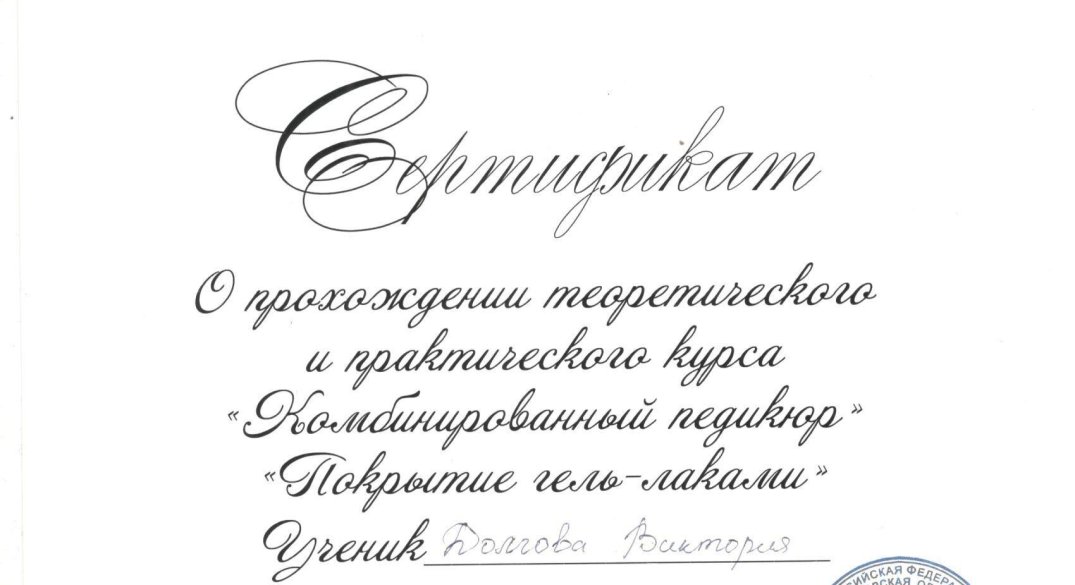 Сертификат
О прохождении теоретического
и практического курса
«Комбинированный педикюр»
«Покрытие гель-лаками»
Ученик Долгова Виктория